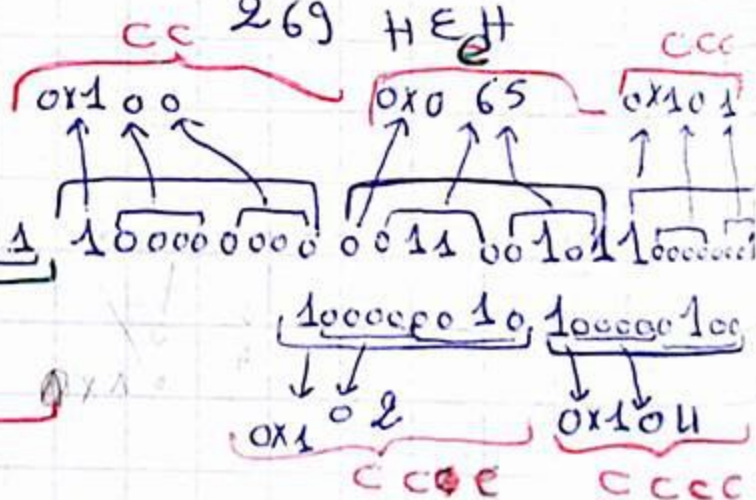 269 H E H
C C e C C C
0x1 0 0 0x0 65 0x1 0 1
1 1 0000 0000 0 0 11 00 10 1 1 00000001
1000000 1 0 100000 100
0x1 0 2 0x1 0 4
C C C C C C C C